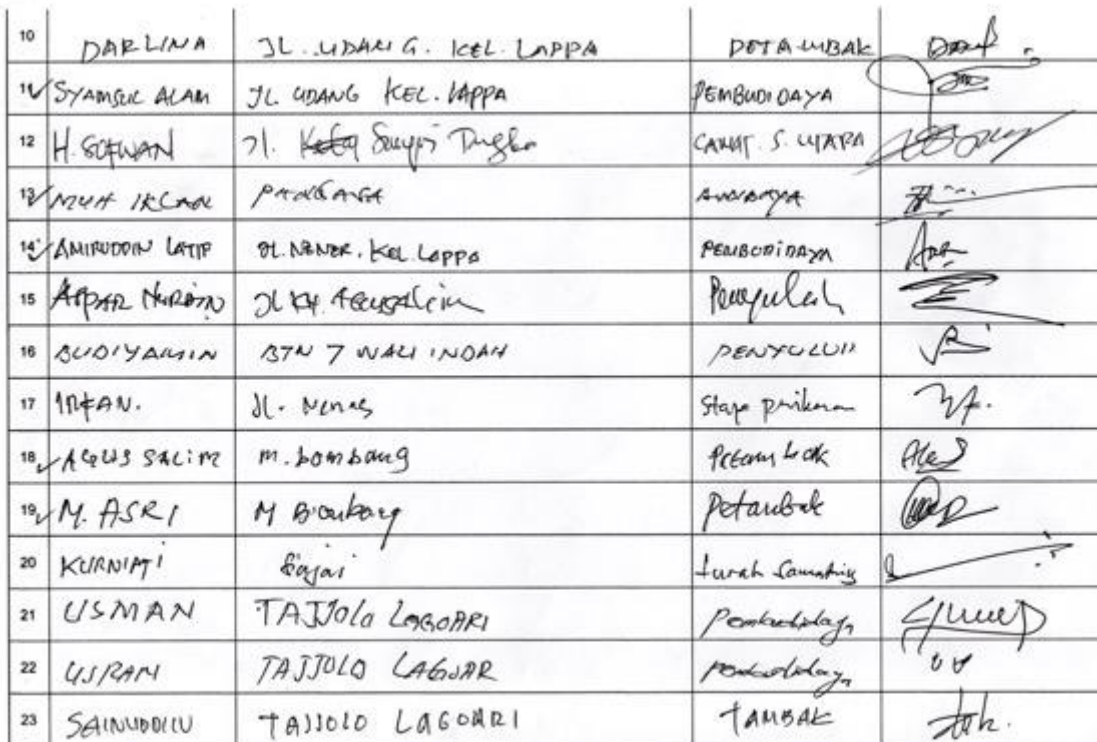 10 DARLINA JL. UDANG. KEL. LAPPA PETAMBAK
11 SYAMSUL ALAM JL. UDANG KEL. LAPPA PEMBUDIDAYA
12 H. SOFWAN Jl. Sungai Tangka CAMAT. S. UTARA
13 MUH IKLAN PANGASA
14 AMIRUDDIN LATIF JL. NENER. KEL. LAPPA PEMBUDIDAYA
15 JL KH. Agussalim
16 BUDIYAMIN BTN 7 WALI INDAH PENYULUH
17 IRFAN. Jl. Nenas
18 AGUS SALIM M. bombang Petambak
19 M. ASRI M Bombang Petambak
20 KURNIATI Sinjai Lurah
21 USMAN TAJJOLO LAGOARI Pembudidaya
22 USRAN TAJJOLO LAGOAR Pembudidaya
23 SAINUDDIN TAJJOLO LAGOARI TAMBAK